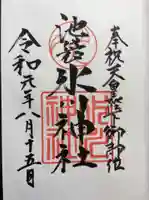 奉祝天皇陛下御即位
池袋氷川神社
令和元年八月十五日